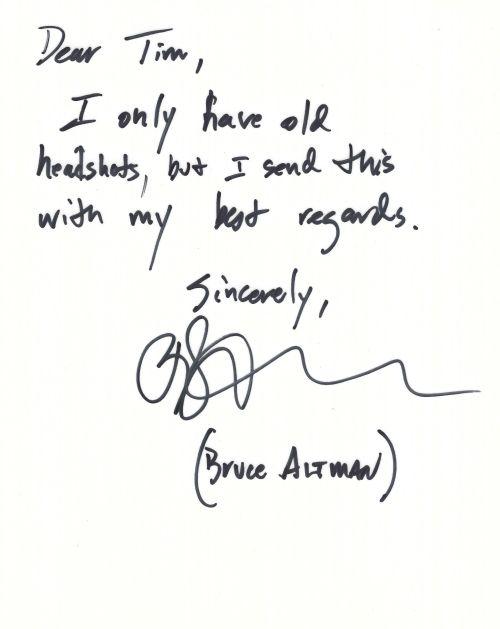 Dear Tim,
I only have old
headshots, but I send this
with my best regards.
Sincerely,
(Bruce ALTMAN)